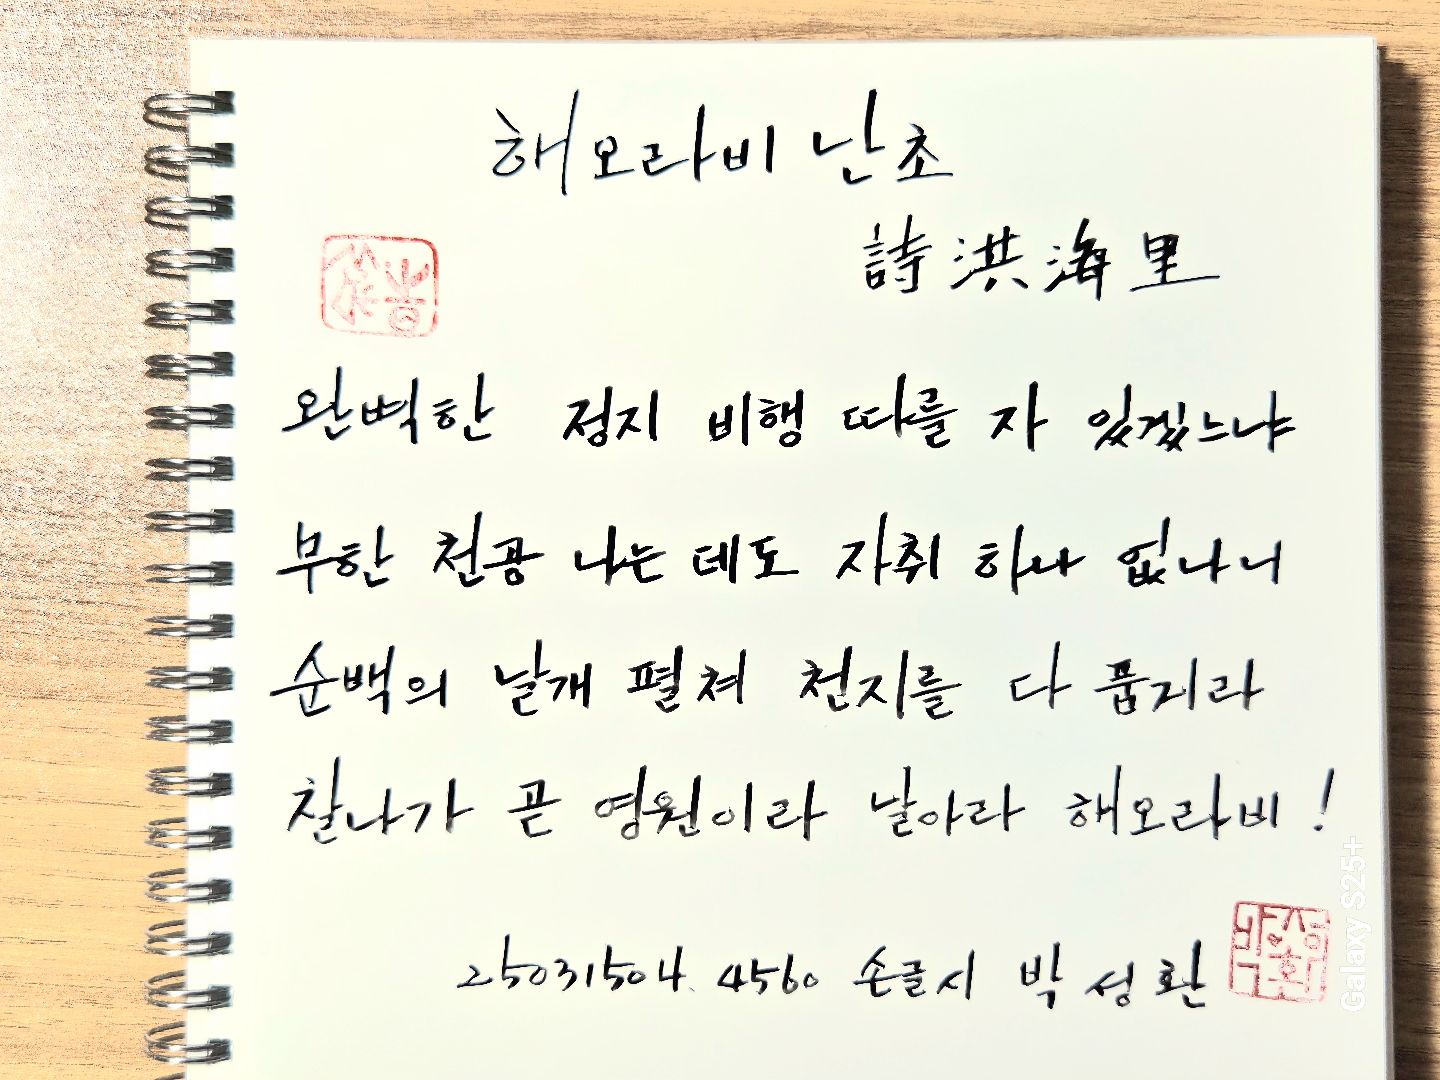 해오라비 난초
詩 洪海里
완벽한 정지 비행 따를 자 있겠느냐
무한 천공 나는 데도 자취 하나 없나니
순백의 날개 펼쳐 천지를 다 품지라
찰나가 곧 영원이라 날아라 해오라비!
25031504. 4560 손글시 박성환
Galaxy S25+